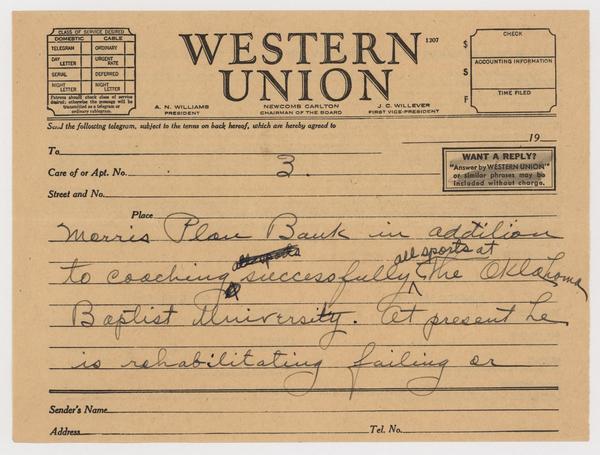 CLASS OF SERVICE DESIRED
DOMESTIC CABLE
TELEGRAM ORDINARY
DAY LETTER URGENT RATE
SERIAL DEFERRED
NIGHT LETTER NIGHT LETTER
Patrons should check class of service
desired; otherwise the message will be
transmitted as a telegram or
ordinary cablegram.
WESTERN
UNION
1207
A. N. WILLIAMS
PRESIDENT
NEWCOMB CARLTON
CHAIRMAN OF THE BOARD
J. C. WILLEVER
FIRST VICE-PRESIDENT
$
S
F
CHECK
ACCOUNTING INFORMATION
TIME FILED
Send the following telegram, subject to the terms on back hereof, which are hereby agreed to
19
WANT A REPLY?
"Answer by WESTERN UNION"
or similar phrases may be
included without charge.
To
Care of or Apt. No. 3.
Street and No.
Place
Morris Plan Bank in addition
all sports at
to coaching successfully the Oklahoma
Baptist University. At present he
is rehabilitating failing or
Sender's Name
Address Tel. No.